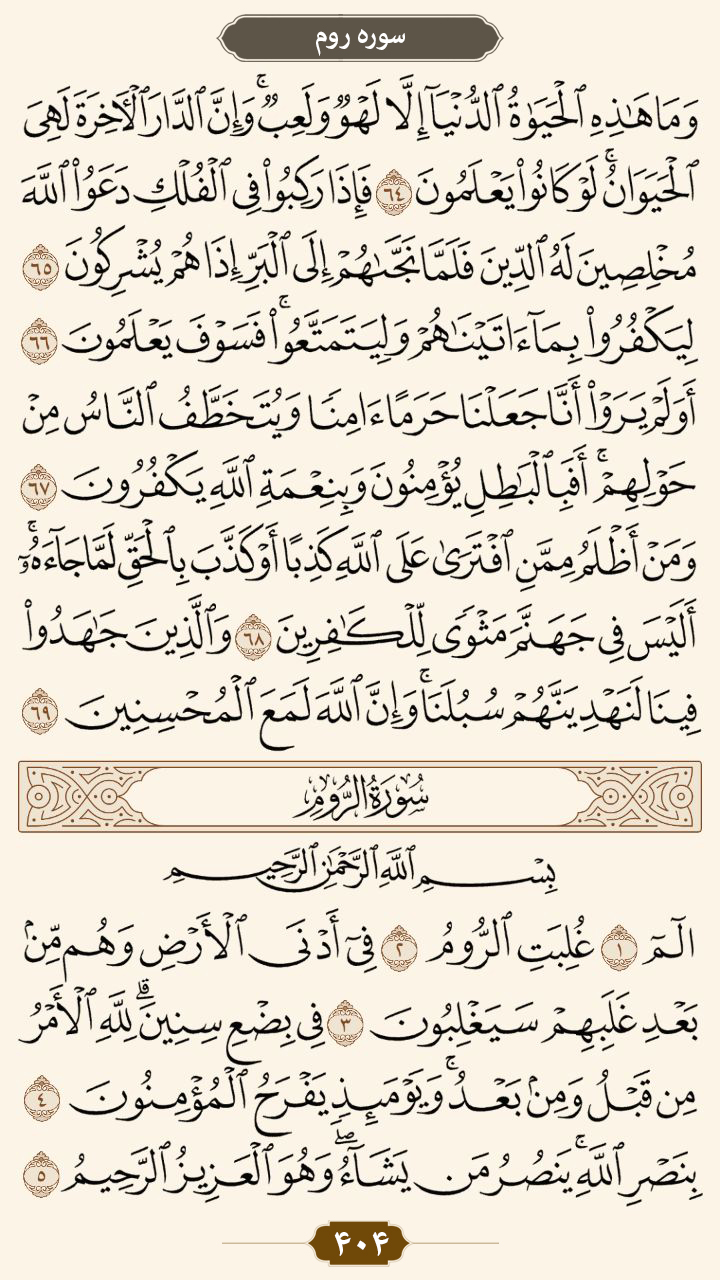 سوره روم
وَمَا هَٰذِهِ ٱلْحَيَوٰةُ ٱلدُّنْيَآ إِلَّا لَهْوٌ وَلَعِبٌ ۚ وَإِنَّ ٱلدَّارَ ٱلْأَخِرَةَ لَهِىَ
ٱلْحَيَوَانُ ۚ لَوْ كَانُوا۟ يَعْلَمُونَ ٦٤ فَإِذَا رَكِبُوا۟ فِى ٱلْفُلْكِ دَعَوُا۟ ٱللَّهَ
مُخْلِصِينَ لَهُ ٱلدِّينَ فَلَمَّا نَجَّىٰهُمْ إِلَى ٱلْبَرِّ إِذَا هُمْ يُشْرِكُونَ ٦٥
لِيَكْفُرُوا۟ بِمَآ ءَاتَيْنَٰهُمْ وَلِيَتَمَتَّعُوا۟ ۚ فَسَوْفَ يَعْلَمُونَ ٦٦
أَوَلَمْ يَرَوْا۟ أَنَّا جَعَلْنَا حَرَمًا ءَامِنًا وَيُتَخَطَّفُ ٱلنَّاسُ مِنْ
حَوْلِهِمْ ۚ أَفَبِٱلْبَٰطِلِ يُؤْمِنُونَ وَبِنِعْمَةِ ٱللَّهِ يَكْفُرُونَ ٦٧
وَمَنْ أَظْلَمُ مِمَّنِ ٱفْتَرَىٰ عَلَى ٱللَّهِ كَذِبًا أَوْ كَذَّبَ بِٱلْحَقِّ لَمَّا جَآءَهُۥٓ ۚ
أَلَيْسَ فِى جَهَنَّمَ مَثْوًى لِّلْكَٰفِرِينَ ٦٨ وَٱلَّذِينَ جَٰهَدُوا۟
فِينَا لَنَهْدِيَنَّهُمْ سُبُلَنَا ۚ وَإِنَّ ٱللَّهَ لَمَعَ ٱلْمُحْسِنِينَ ٦٩
سُورَةُ الرُّومِ
بِسْمِ ٱللَّهِ ٱلرَّحْمَٰنِ ٱلرَّحِيمِ
الٓمٓ ١ غُلِبَتِ ٱلرُّومُ ٢ فِىٓ أَدْنَى ٱلْأَرْضِ وَهُم مِّنۢ
بَعْدِ غَلَبِهِمْ سَيَغْلِبُونَ ٣ فِى بِضْعِ سِنِينَ ۗ لِلَّهِ ٱلْأَمْرُ
مِن قَبْلُ وَمِنۢ بَعْدُ ۚ وَيَوْمَئِذٍ يَفْرَحُ ٱلْمُؤْمِنُونَ ٤
بِنَصْرِ ٱللَّهِ ۚ يَنصُرُ مَن يَشَآءُ ۖ وَهُوَ ٱلْعَزِيزُ ٱلرَّحِيمُ ٥
۴۰۴